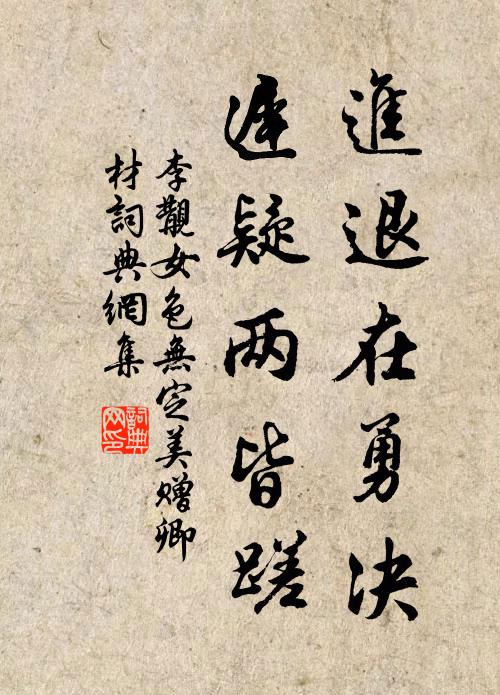 進退在勇決
遲疑兩皆蹉
李覯女色無定美贈卿
材詞典網集
詞典
网印